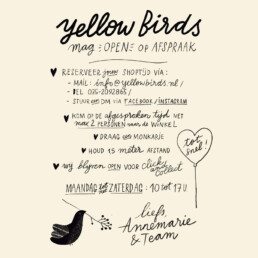 yellow birds
mag OPEN op AFSPRAAK
♥ RESERVEER jouw SHOPTIJD VIA:
- MAIL: info@yellowbirds.nl /
- BEL 035-2092865 /
- STUUR EEN DM VIA FACEBOOK / INSTAGRAM
♥ KOM OP DE afgesproken tijd MET
max 2 PERSONEN naar DE WINKEL
♥ DRAAG EEN MONDKAPJE
♥ HOUD 1.5 meter AFSTAND
♥ wij blijven OPEN VOOR Click and Collect
MAANDAG ZATERDAG: 10 tot 17 U.
tot snel!
liefs,
Annemarie
& Team